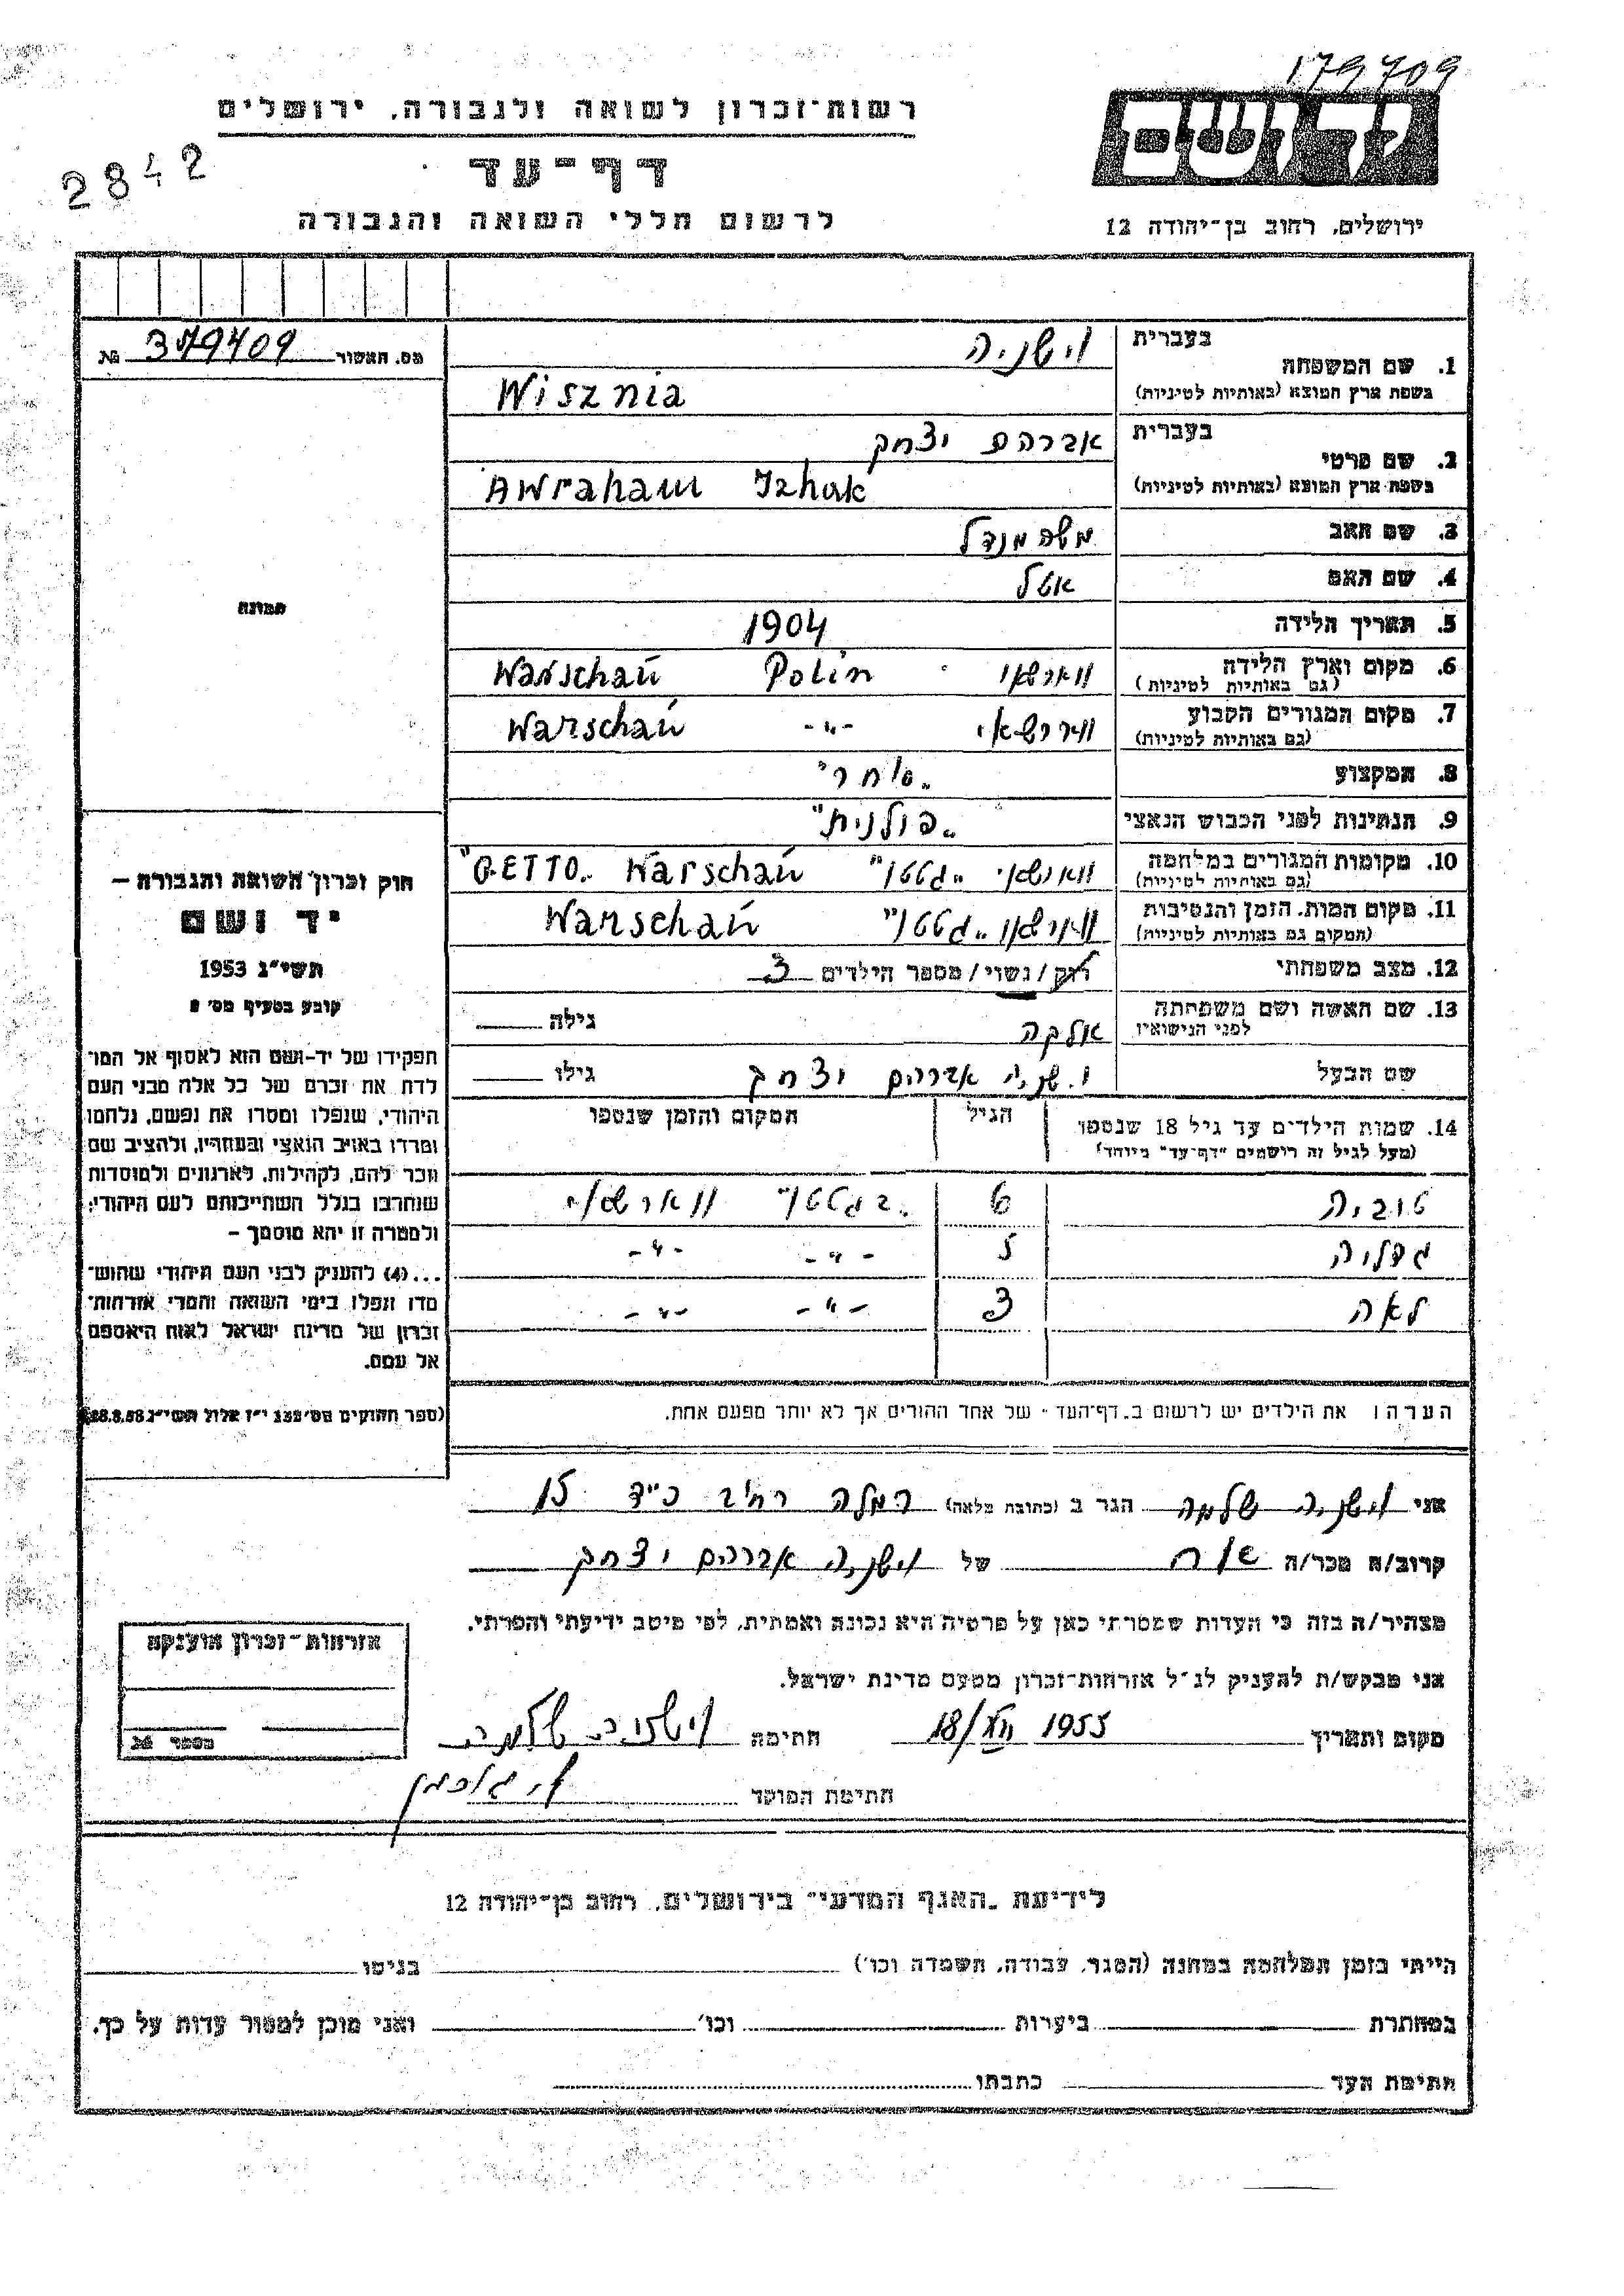 179709
רשות-זכרון לשואה ולגבורה, ירושלים
דף-עד
2842
לרשום חללי השואה והגבורה
ירושלים, רחוב בן-יהודה 12
מס. האשור 379409 №
1. שם המשפחה בעברית וישניה
בשפת ארץ המוצא (באותיות לטיניות) Wisznia
2. שם פרטי בעברית אברהם יצחק
בשפת ארץ המוצא (באותיות לטיניות) Awraham Izhak
3. שם האב משה מנדל
4. שם האם אטל
5. תאריך הלידה 1904
6. מקום וארץ הלידה ווארשאו Polin Warschau
(גם באותיות לטיניות)
7. מקום המגורים הקבוע ווארשאו -"- Warschau
(גם באותיות לטיניות)
8. המקצוע "סוחר"
9. הנתינות לפני הכבוש הנאצי "פולנית"
10. מקומות המגורים במלחמה ווארשאו "גטטו" Warschau "GETTO
(גם באותיות לטיניות)
11. מקום המות, הזמן והנסיבות ווארשאו "גטטו" Warschau
(המקום גם באותיות לטיניות)
12. מצב משפחתי רוק/נשוי/מספר הילדים 3
13. שם האשה ושם משפחתה אלקה גילה
לפני הנישואין
שם הבעל וישניה אברהם יצחק גילו
14. שמות הילדים עד גיל 18 שנספו הגיל המקום והזמן שנספו
(מעל לגיל זה רושמים "דף-עד" מיוחד)
טוביה 6 "בגטטו" ווארשאו
גדליה 5 -"- -"-
לאה 3 -"- -"-
הערה: את הילדים יש לרשום ב"דף-העד" של אחד ההורים אך לא יותר מפעם אחת.
תמונה
חוק זכרון השואה והגבורה –
יד ושם
תשי"ג 1953
קובע בסעיף מס'
תפקידו של יד-ושם הוא לאסוף אל המו־
לדת את זכרם של כל אלה מבני העם
היהודי, שנפלו ומסרו את נפשם, נלחמו
ומרדו באויב הנאצי ובעוזריו, ולהציב שם
וזכר להם, לקהילות, לארגונים ולמוסדות
שנחרבו בגלל השתייכותם לעם היהודי;
ולמטרה זו יהא מוסמך –
...(4) להעניק לבני העם היהודי שהוש־
מדו ונפלו בימי השואה והמרי אזרחות־
זכרון של מדינת ישראל לאות היאספם
אל עמם.
(ספר החוקים מס' י"ז אלול תשי"ג
אני וישניה שלמה הגר ב (כתובת מלאה) רמלה רח'ב כ"ד 15
קרוב/ה מכר/ה אח של וישניה אברהם יצחק
מצהיר/ה בזה כי העדות שמסרתי כאן על פרטיה היא נכונה ואמתית, לפי מיטב ידיעתי והכרתי.
אני מבקש/ת להעניק לנ"ל אזרחות-זכרון מטעם מדינת ישראל.
מקום ותאריך 1955 18/ חתימה וישניה שלמה
חתימת הפוקד
אזרחות-זכרון הוענקה
מספר
לידיעת "האגף המדעי" בירושלים, רחוב בן-יהודה 12
הייתי בזמן המלחמה במחנה (הסגר, עבודה, השמדה וכו') בגיטו
במחתרת ביערות וכו' ואני מוכן למסור עדות על כך.
חתימת העד כתבתו